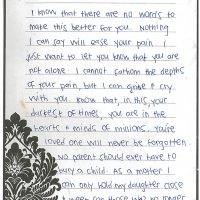 I know that there are no words to
make this better for you. Nothing
I can say will ease your pain. I
just want to let you know that you are
not alone. I cannot fathom the depths
of your pain, but I can grieve & cry
with you. Know that, in this your
darkest of times, you are in the
hearts & minds of millions. You're
loved one will never be forgotten.
No parent should ever have to
bury a child. As a mother I
can only hold my daughter close
for those who no longer